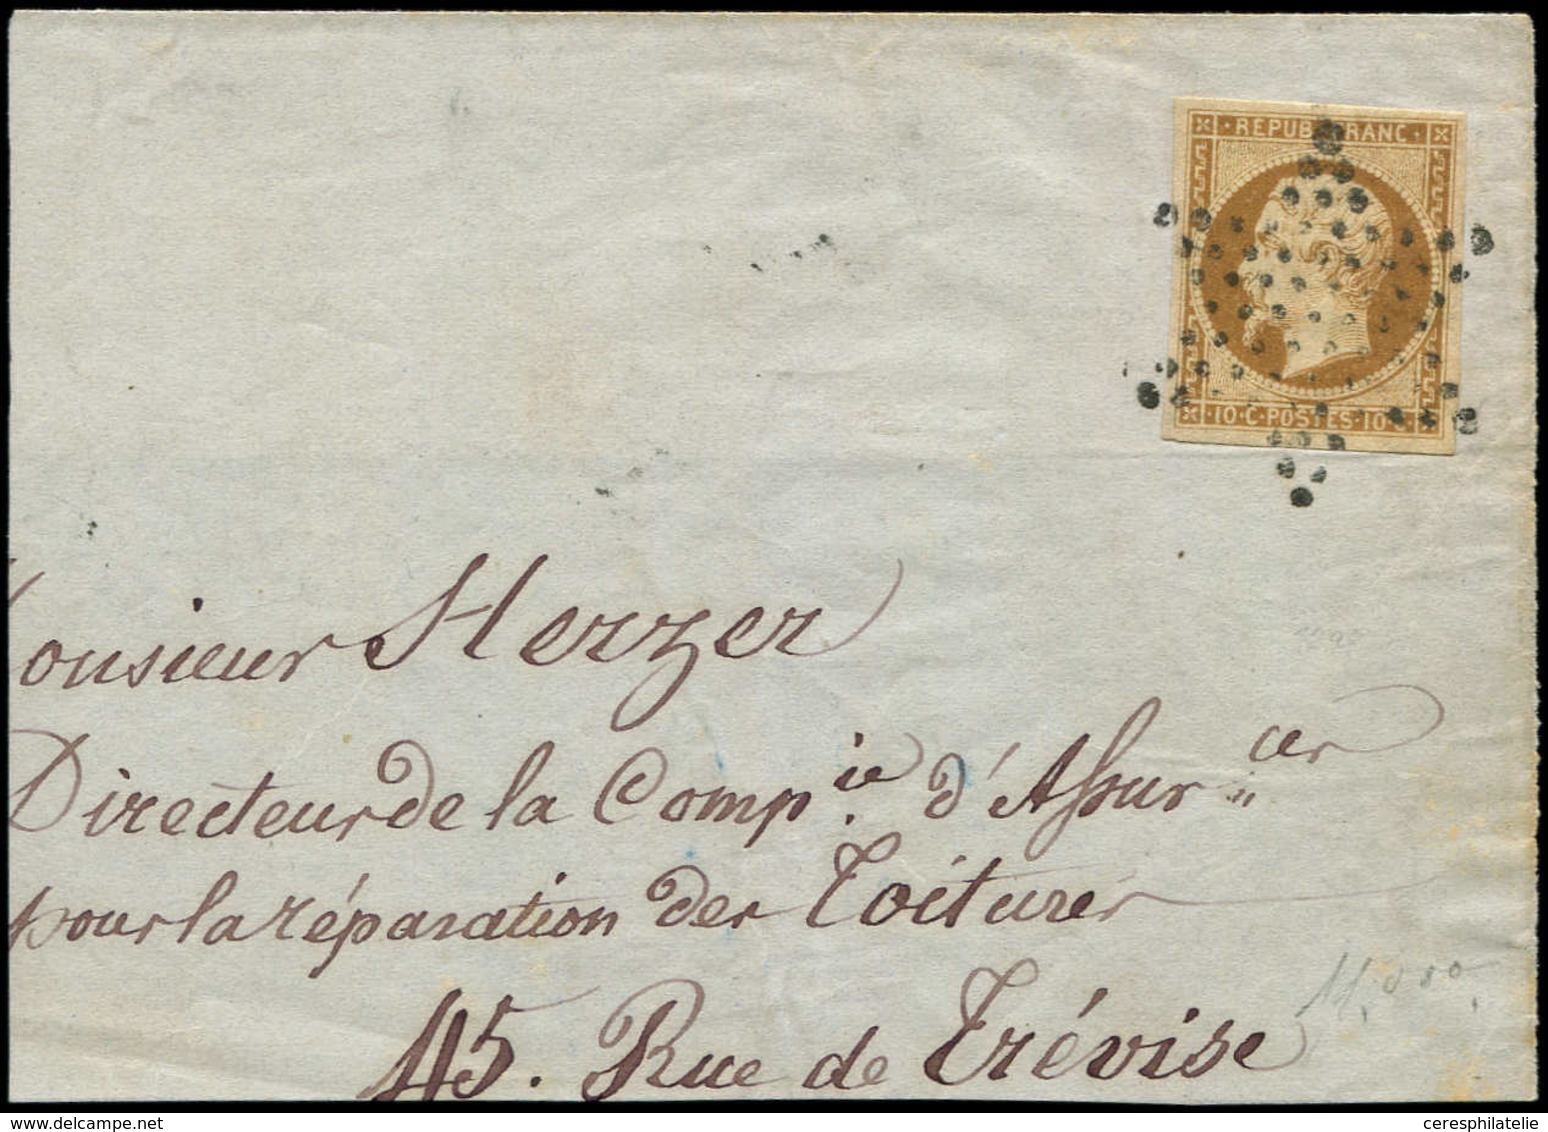 REPUB FRANC
10·C·POSTES·10·C
onsieur Herzer
Directeur de la Comp.ie d'Assur.ces
pour la réparation des Toitures
45. Rue de Trévise
ceresphilatelie